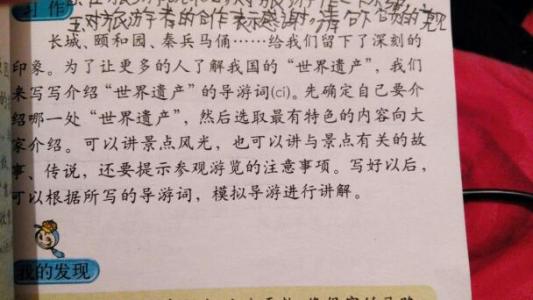 习作
王.对旅游者的合作表示感谢,请
长城、颐和园、秦兵马俑……给我们留下了深刻的
印象。为了让更多的人了解我国的“世界遗产”，我们
来写写介绍“世界遗产”的导游词(cí)。先确定自己要介
绍哪一处“世界遗产”，然后选取最有特色的内容向大
家介绍。可以讲景点风光，也可以讲与景点有关的故
事、传说，还要提示参观游览的注意事项。写好以后，
可以根据所写的导游词，模拟导游进行讲解。
我的发现